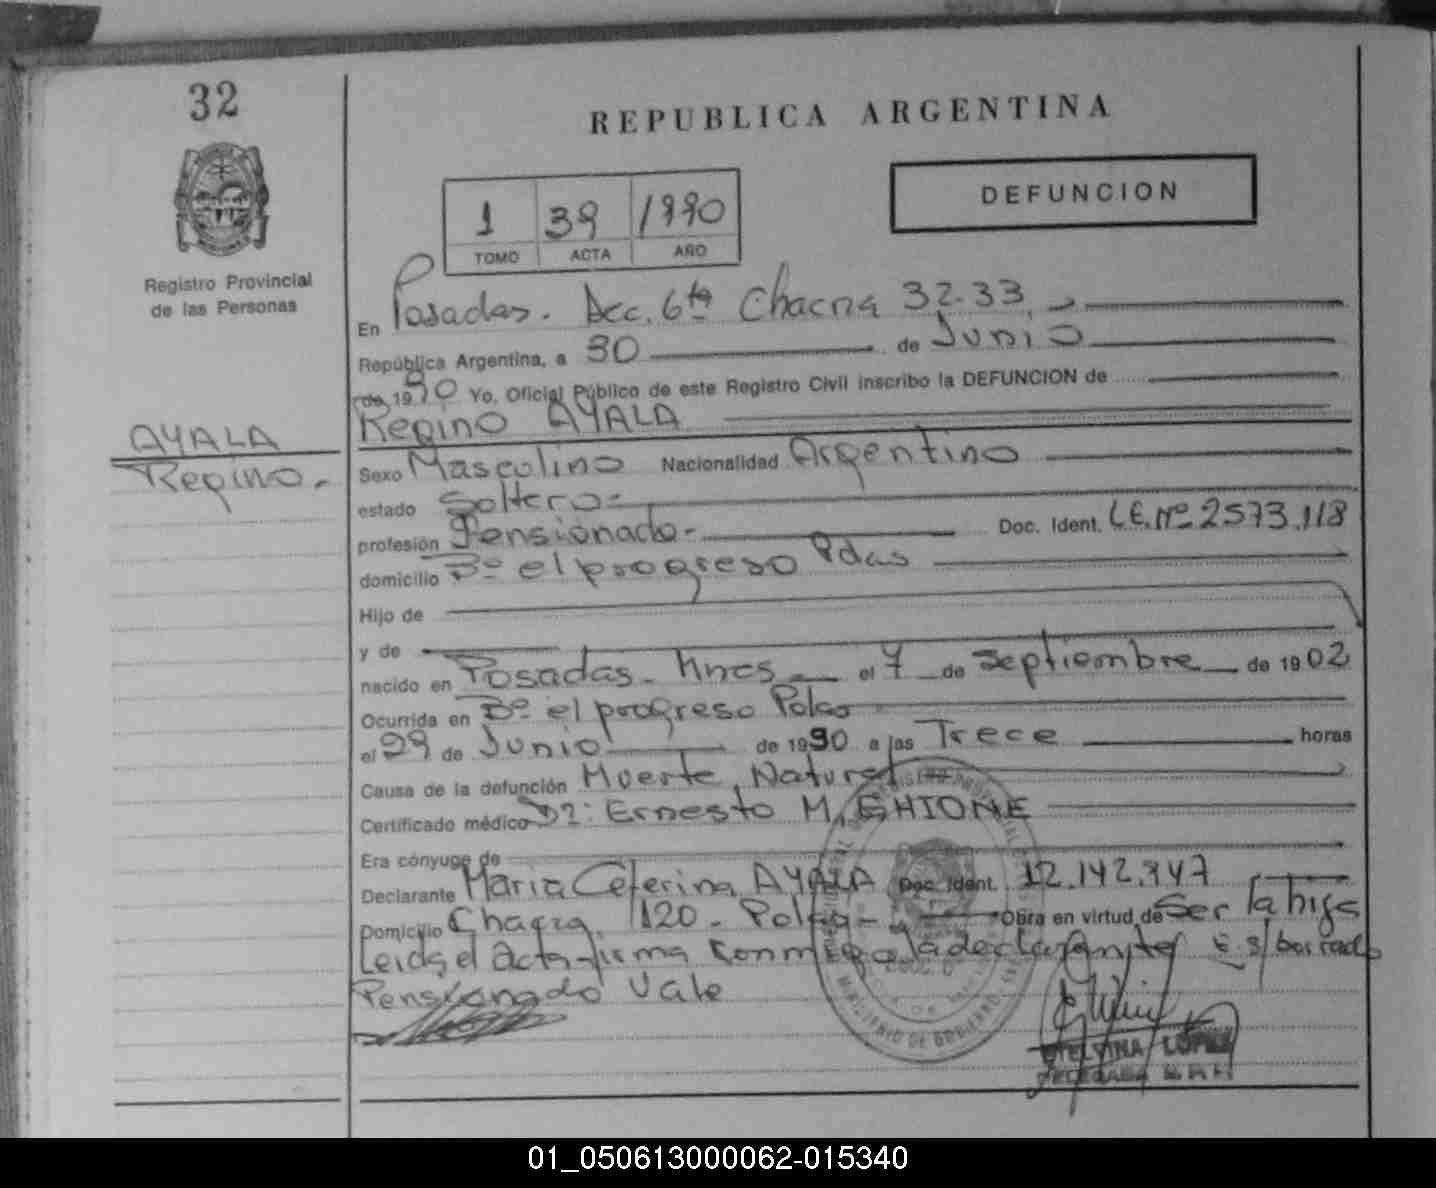 32
REPUBLICA ARGENTINA
DEFUNCION
1 39 1990
TOMO ACTA AÑO
Registro Provincial
de las Personas
En Posadas. Dcc. 6ta Chacra 32.33
República Argentina, a 30 de Junio
de 1990 Yo, Oficial Público de este Registro Civil inscribo la DEFUNCION de
Regino AYALA
AYALA
Regino.
Sexo Masculino Nacionalidad Argentino
estado Soltero
profesión Pensionado Doc. Ident. L.E.Nº 2573.118
domicilio Bº el progreso Pdas
Hijo de
y de
nacido en Posadas Mnes el 7 de Septiembre de 1902
Ocurrida en Bº el progreso Pdas
el 29 de Junio de 1990 a las Trece horas
Causa de la defunción Muerte Natural
Certificado médico Dr: Ernesto M. GHIONE
Era cónyuge de
Declarante Maria Ceferina AYALA Doc. Ident. 12.142.947
Domicilio Chacra 120 - Pdas Obra en virtud de Ser la hija
Leida el acta firma conmigo la declarante E. s/ borrado
Pensionado Vale
MINISTERIO DE GOBIERNO
ETELVINA LOPEZ
01_050613000062-015340